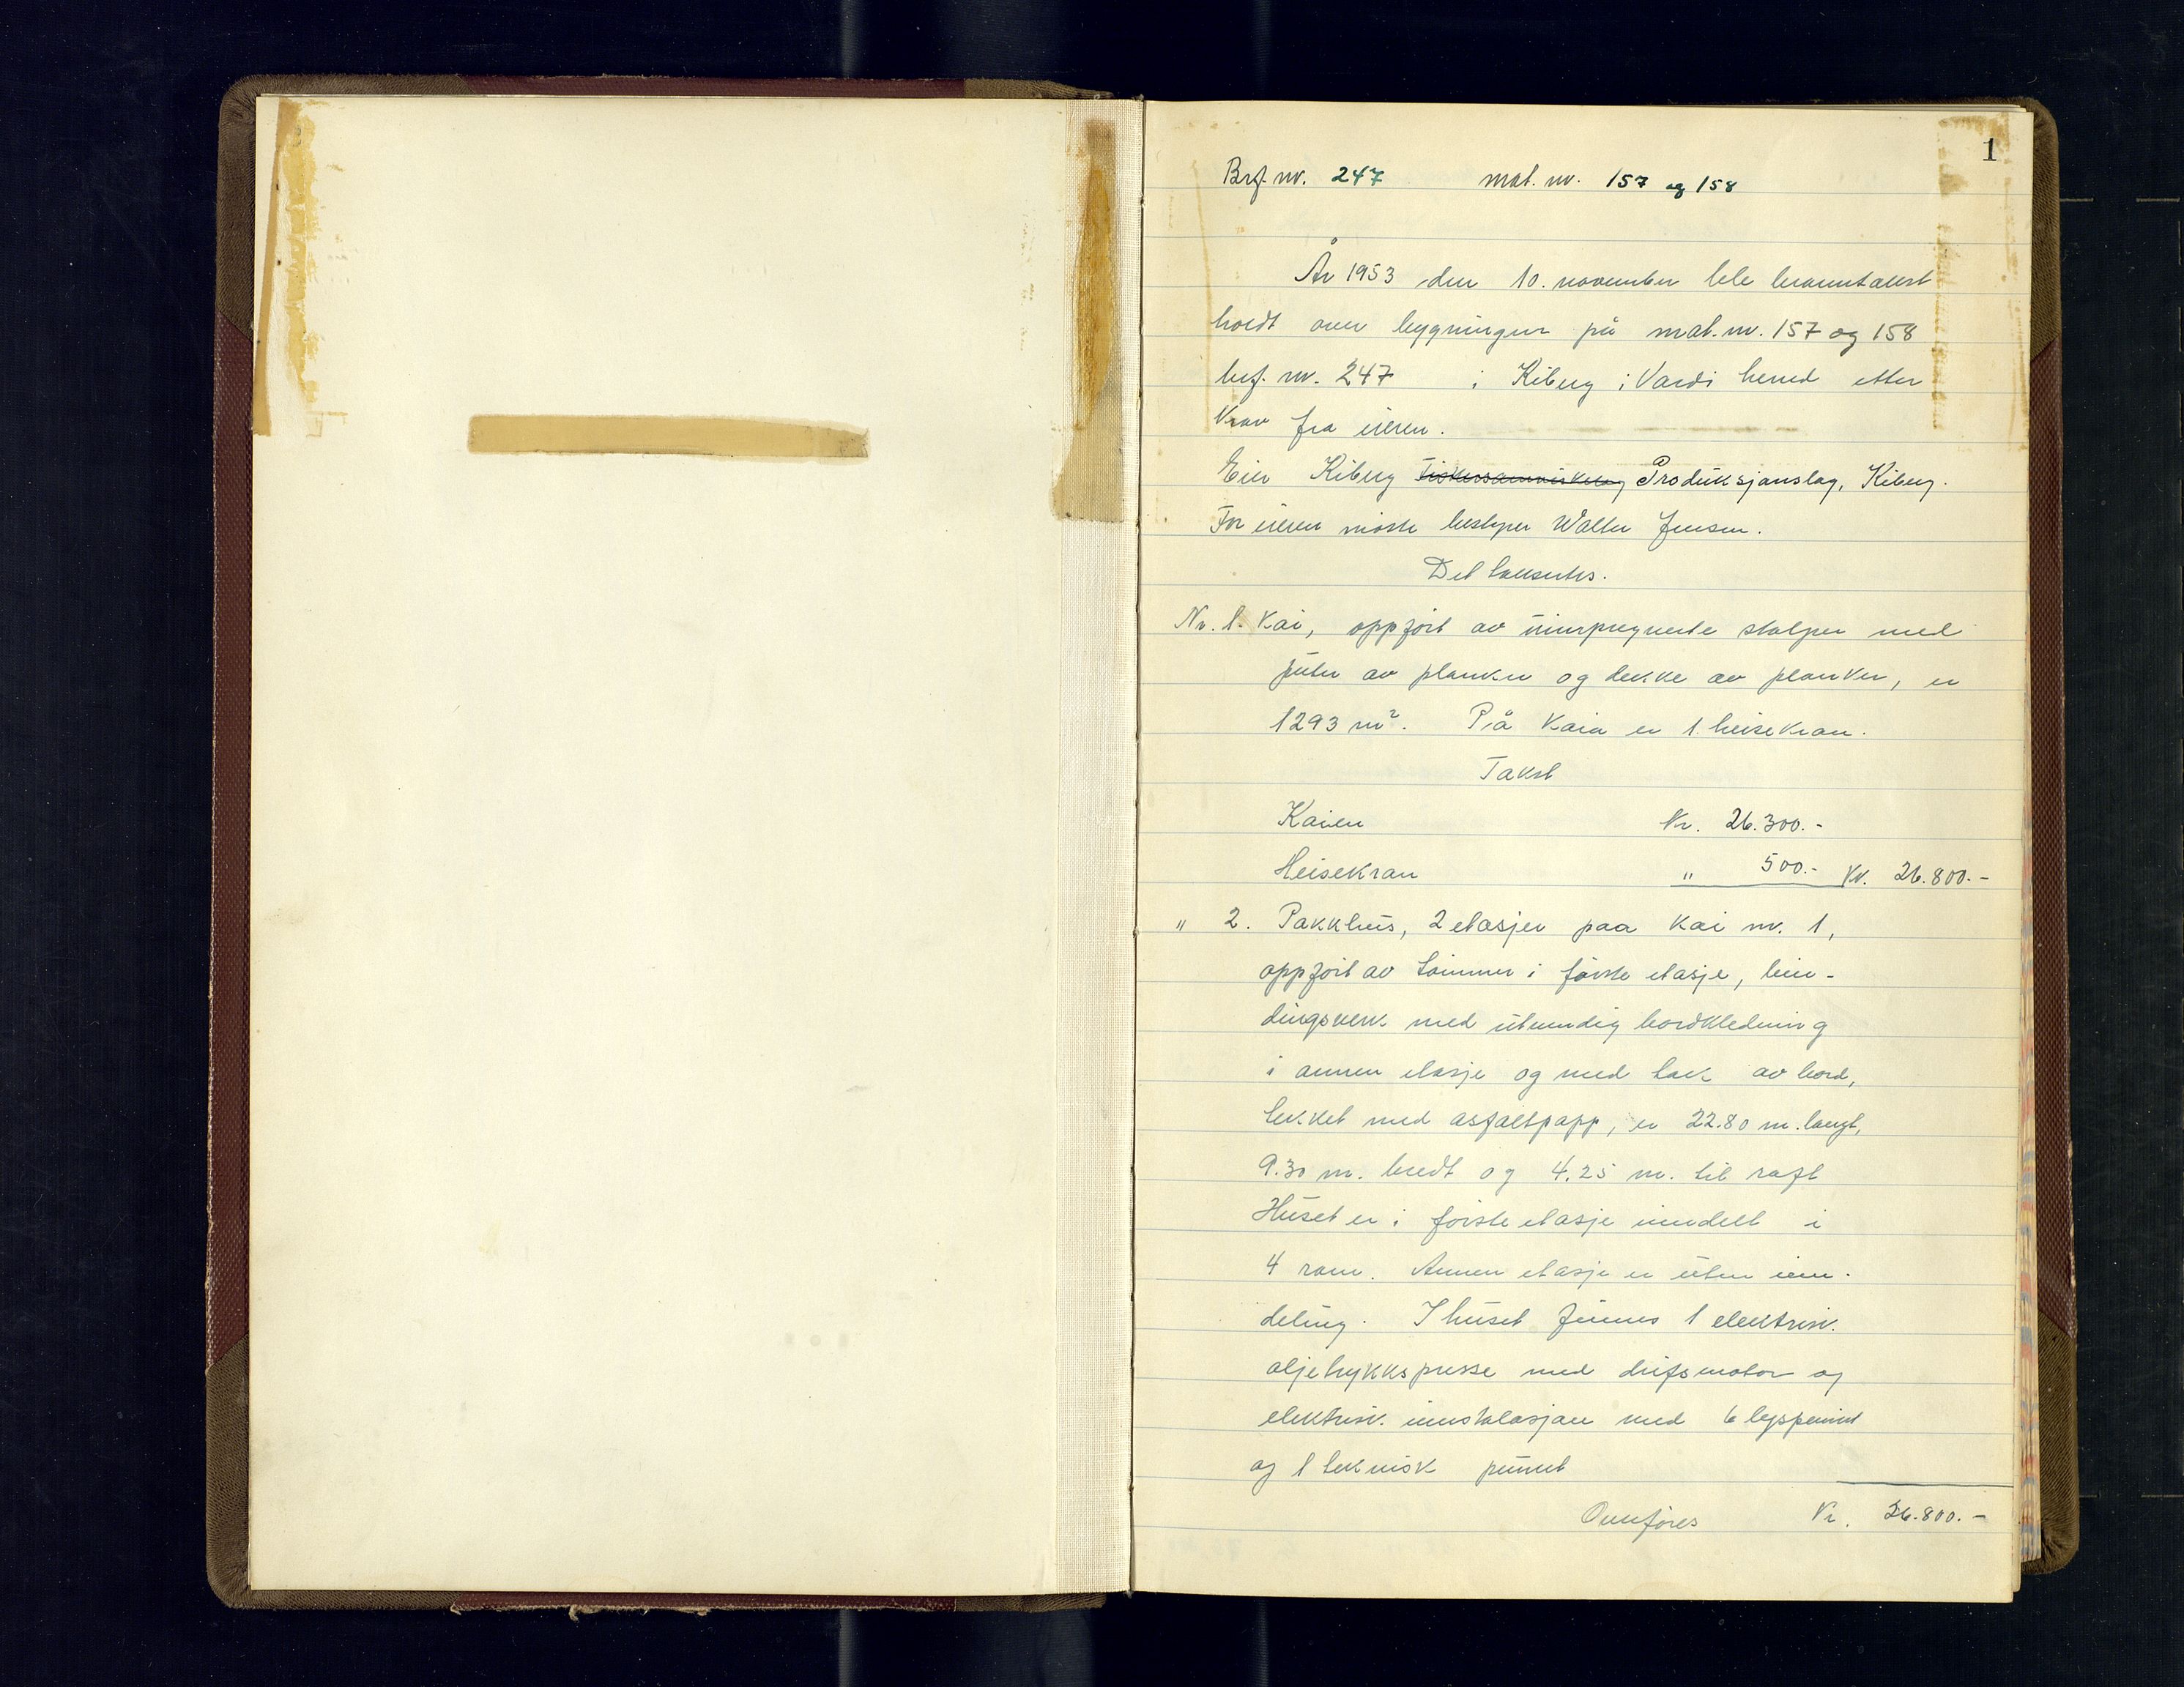 1
Brf. nr. 247 mat. nr. 157 og 158
År 1953 den 10. november ble branntakst
holdt over bygninger på mat. nr. 157 og 158
brf. nr. 247 i Kiberg i Vardö herred etter
krav fra eieren.
Eier Kiberg Fiskersamvirkelag Produksjonslag, Kiberg.
For eieren mötte bestyrer Walter Jensen.
Det takseres.
Nr. 1. Kai, oppfört av uimpregnerte stolper med
puter av planker og dekke av planker, er
1293 m². På kaia er 1 heisekran.
Takst
Kaien Kr. 26.300.-
Heisekran " 500.- Kr. 26.800.-
" 2. Pakkhus, 2 etasjer paa kai nr. 1,
oppfört av tömmer i förste etasje, bin-
dingsverk med utvendig bordkledning
i annen etasje og med tak av bord,
tekket med asfaltpapp, er 22.80 m. langt,
9.30 m. bredt og 4.25 m. til raft
Huset er i förste etasje inndelt i
4 rom. Annen etasje er uten inn-
deling. I huset finnes 1 elektrisk
oljetrykkspresse med drifsmotor og
elektrisk innstalasjon med 6 lyspunkt
og 1 teknisk punkt
Overföres Kr. 26.800.-